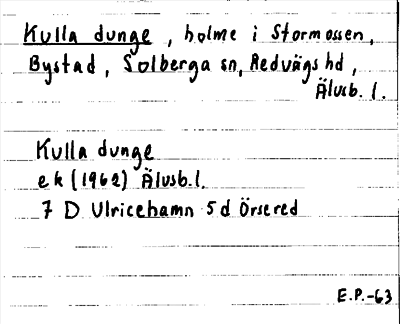 Kulla dunge, holme i Stormossen,
Bystad, Solberga sn, Redvägs hd,
Älvsb. l.
Kulla dunge
ek (1962) Älvsb. l.
7 D Ulricehamn 5 d Örsered
E.P.-63